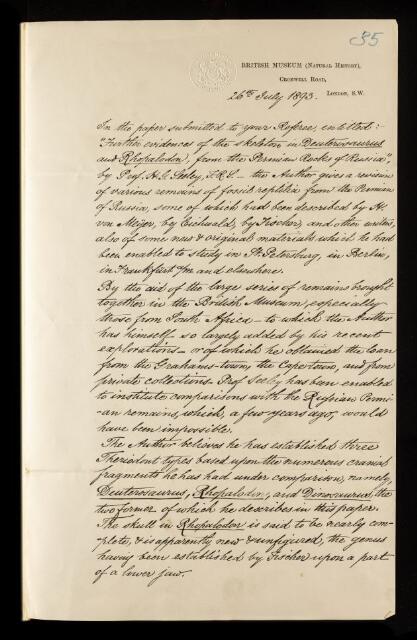 35
BRITISH MUSEUM (NATURAL HISTORY),
CROMWELL ROAD,
LONDON, S.W.
26th July 1893.
In the paper submitted to your Referee, entitled:-
"Further evidences of the skeleton in Deuterosaurus
and Rhopalodon, from the Permian Rocks of Russia",
by Prof. H. G. Seeley, F.R.S. - the Author gives a revision
of various remains of fossil reptilia from the Permian
of Russia, some of which had been described by H.
von Meyer, by Eichwald, by Fischer, and other writers,
also of some new & original materials which he had
been enabled to study in St. Petersburg, in Berlin,
in Frankfurt a/m and elsewhere.
By the aid of the large series of remains brought
together in the British Museum, especially
those from South Africa - to which the Author
has himself so largely added by his recent
explorations - or of which he obtained the loan
from the Grahams-town, the Cape town, and from
private collections. Prof Seeley has been enabled
to institute comparisons with the Russian Permi-
-an remains, which, a few years ago, would
have been impossible.
The Author believes he has established three
Theriodont types based upon the numerous cranial
fragments he has had under comparison, namely,
Deuterosaurus, Rhopalodon, and Dinosaurus, the
two former of which he describes in this paper.
The skull in Rhopalodon is said to be nearly com-
plete, & is apparently new & unfigured, the genus
having been established by Fischer upon a part
of a lower jaw.